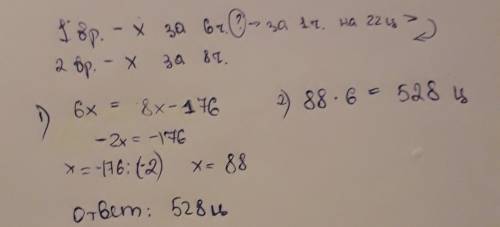 1 бр. - х за 6ч. ? → за 1ч. на 22ц >
2 бр. - х за 8ч.
1) 6х = 8х-176
-2х = -176
х = -176:(-2) х = 88
2) 88 · 6 = 528 ц
Ответ: 528ц